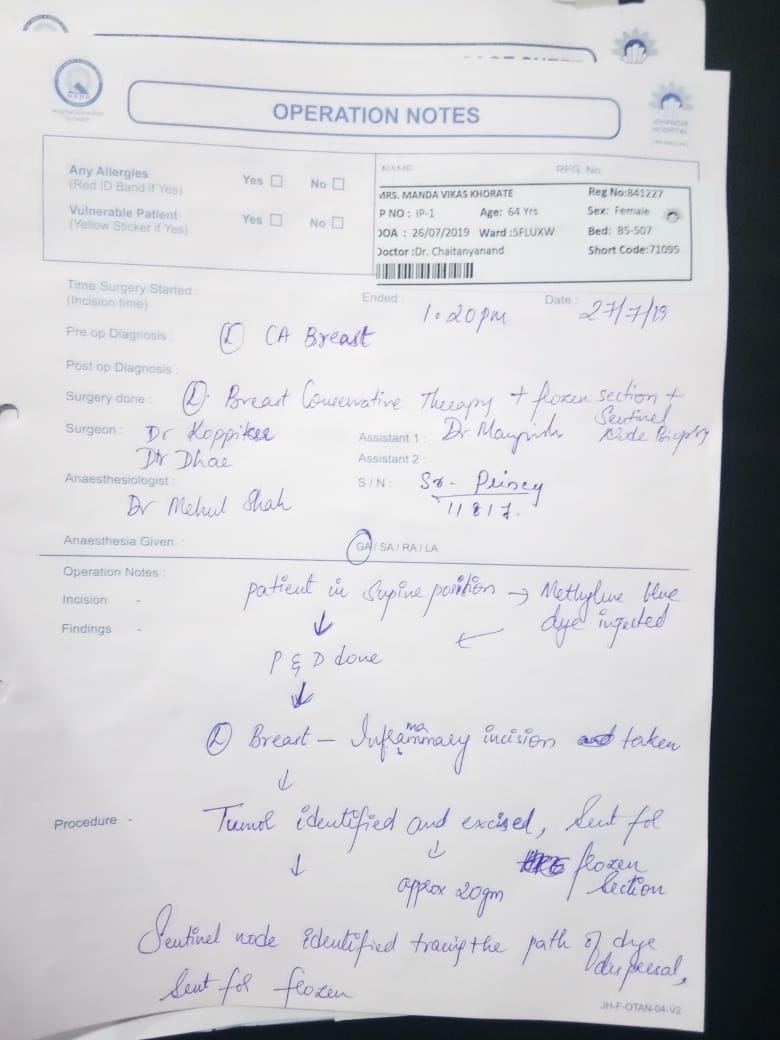 OPERATION NOTES
JEHANGIR
HOSPITAL
Any Allergies Yes No
(Red ID Band if Yes)
Vulnerable Patient Yes No
(Yellow Sticker if Yes)
NAME REG. No.
MRS. MANDA VIKAS KHORATE Reg No:841227
P NO : IP-1 Age: 64 Yrs Sex: Female
DOA : 26/07/2019 Ward :5FLUXW Bed: B5-507
Doctor :Dr. Chaitanyanand Short Code:71095
Time Surgery Started : Ended : 1:20pm Date : 27/7/19
(Incision time)
Pre op Diagnosis : (L) CA Breast
Post op Diagnosis :
Surgery done : (L) Breast Conservative Therapy + frozen section +
Sentinel
Node Biopsy
Surgeon : Dr Koppiker Assistant 1 : Dr
Dr Dhar Assistant 2 :
Anaesthesiologist : S / N : Sr.
Dr Mehul Shah 11817.
Anaesthesia Given : GA / SA / RA / LA
Operation Notes :
Incision - patient in supine position → Methylene blue
dye injected
Findings -
P & D done
(L) Breast – Inframammary incision taken
Procedure - Tumor identified and excised, Sent for
frozen
approx 20gm Section
Sentinel node identified tracing the path of dye
dispersal,
Sent for frozen
JH-F-OTAN-04-V2